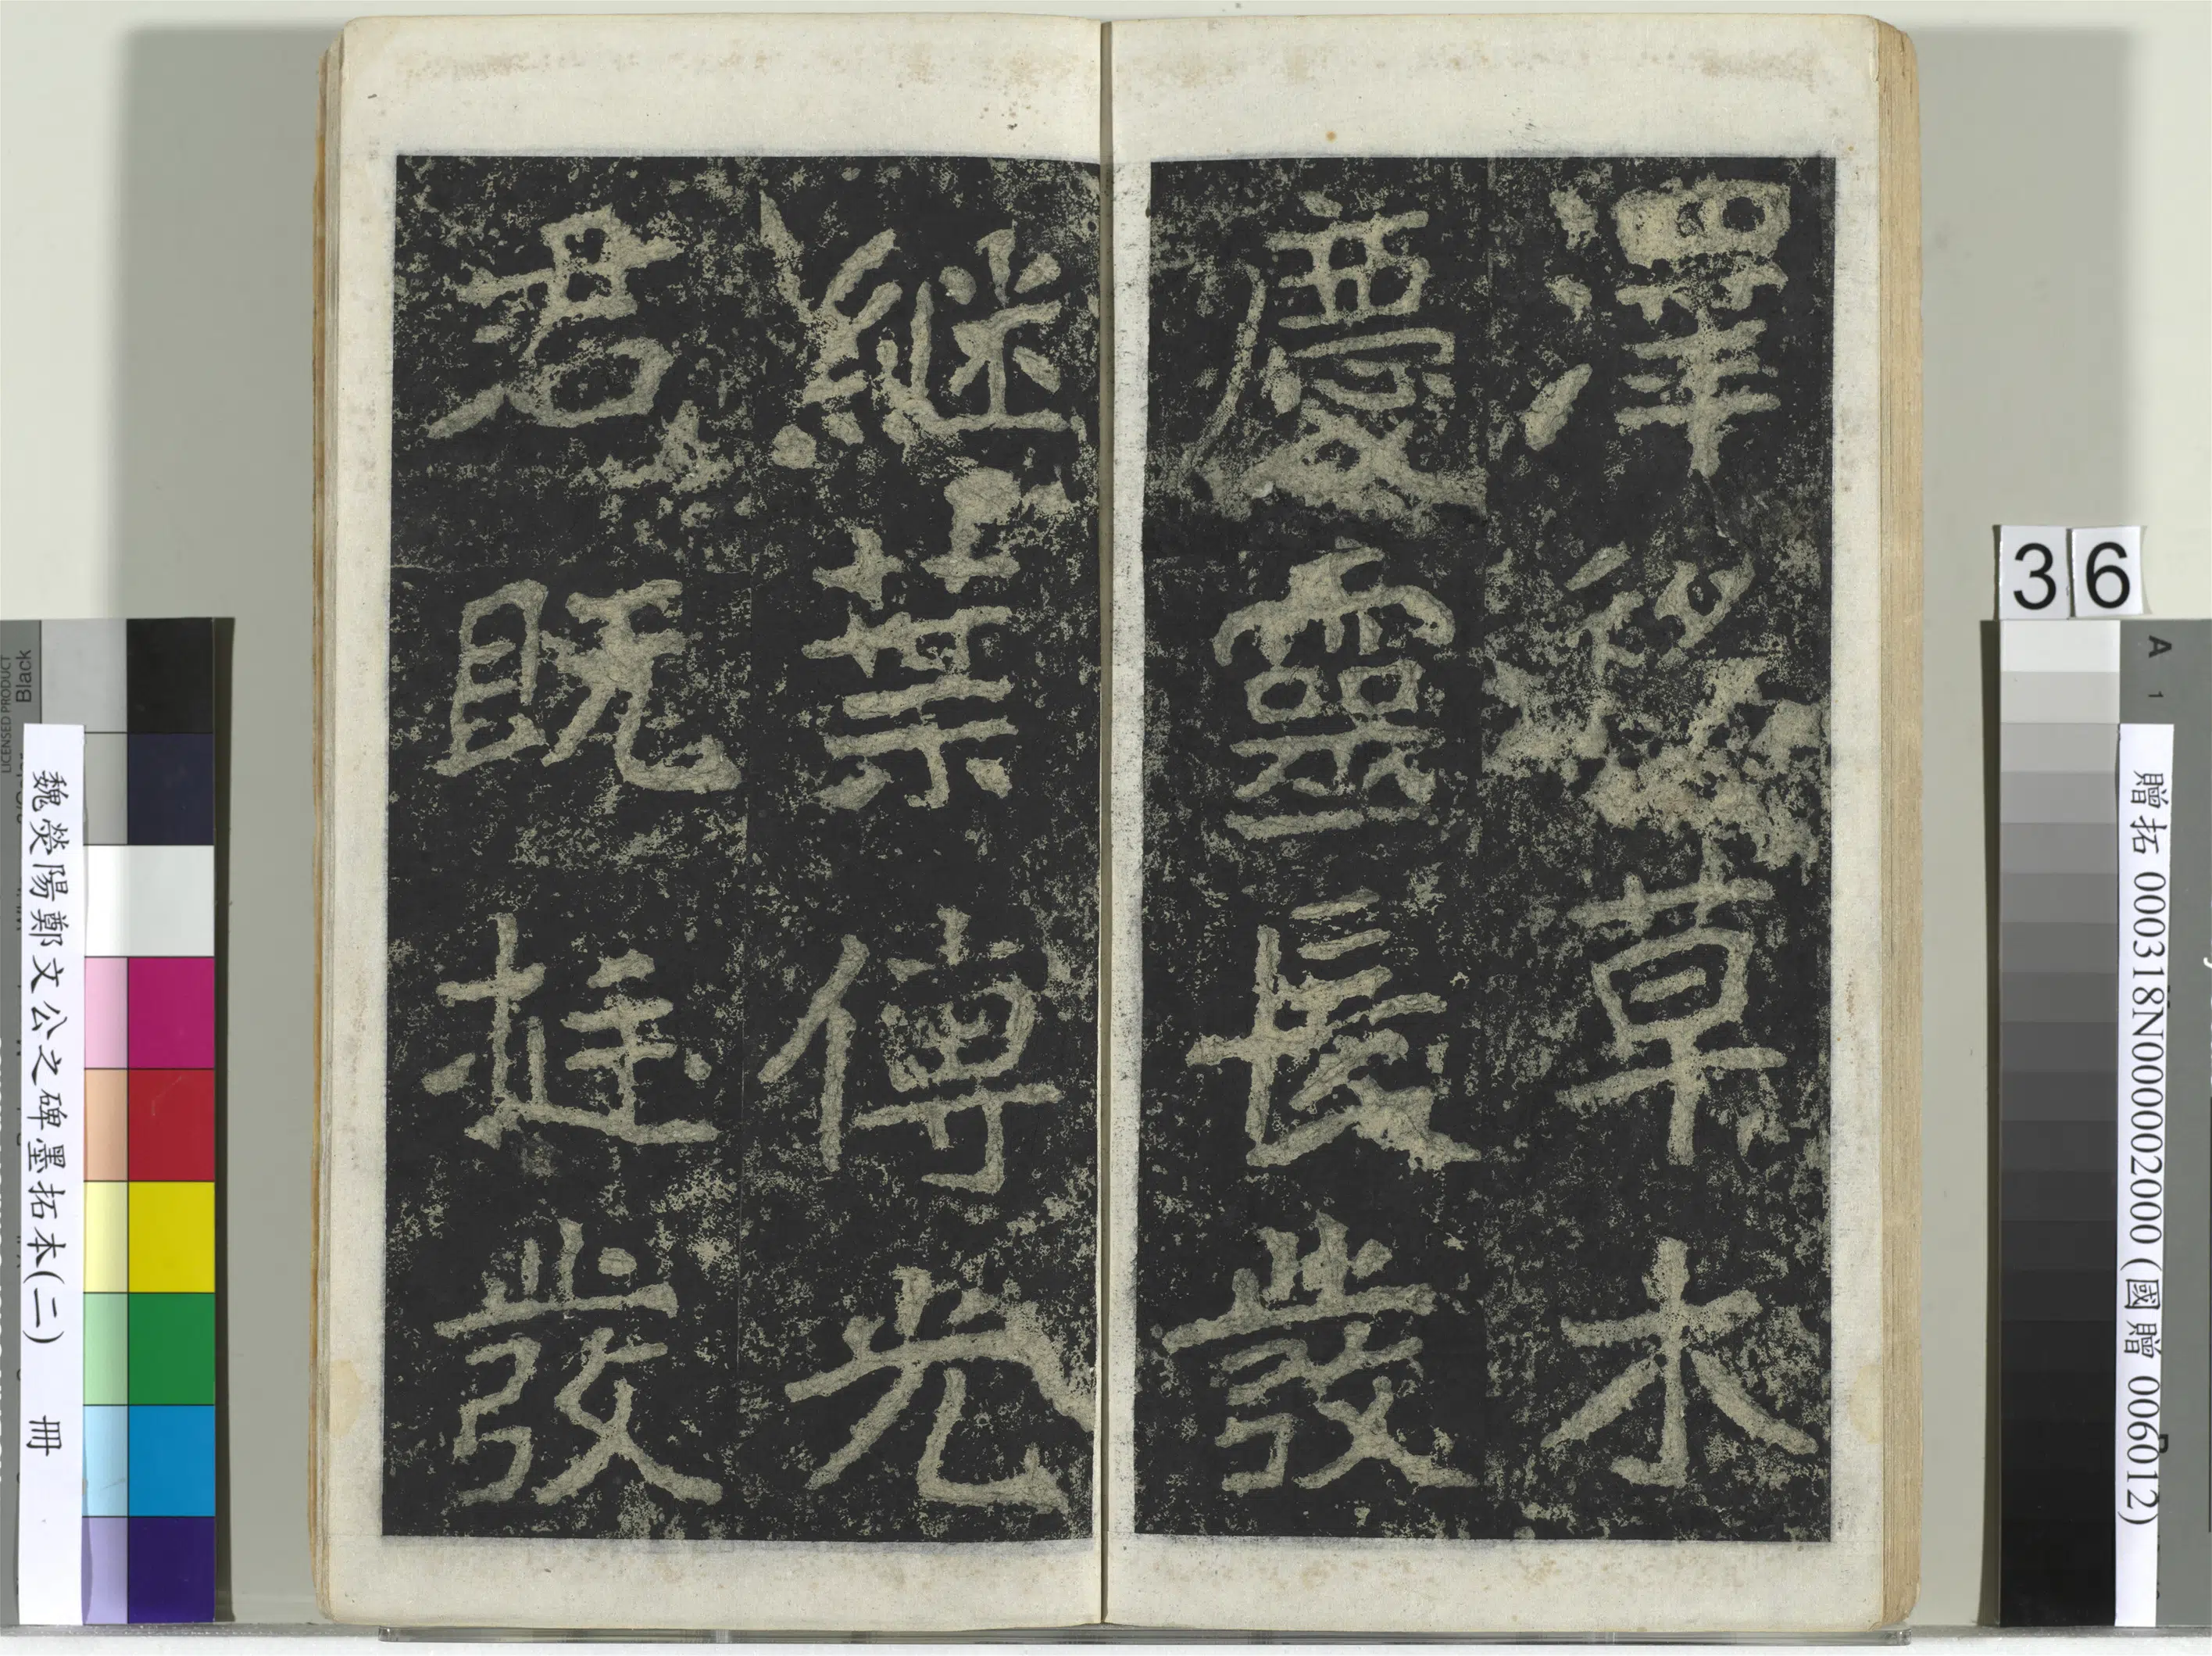 澤移草木
慶靈長發
継葉傳光
君既挺發
36
贈拓 000318N000002000 (國贈 006012)
魏熒陽鄭文公之碑墨拓本(二) 冊
LICENSED PRODUCT
Black
A
1